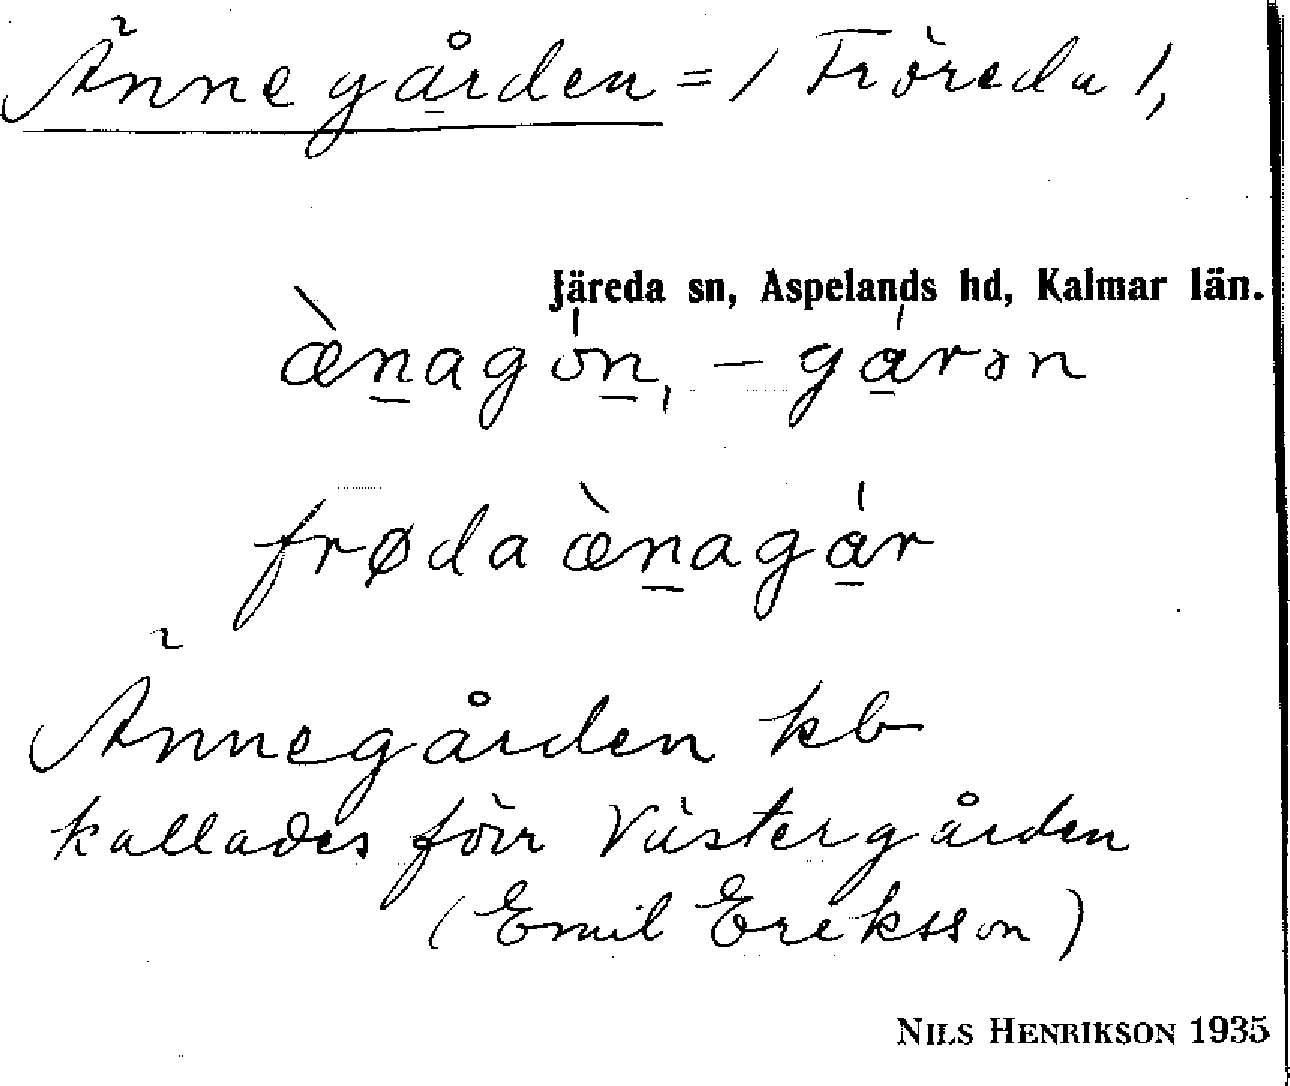 Ännegården = / Fröreda /,
Järeda sn, Aspelands hd, Kalmar län.
ænagón, – gárən
frøda ænagár
Ännegården kb
kallades förr Västergården
(Emil Ereksson)
NILS HENRIKSON 1935